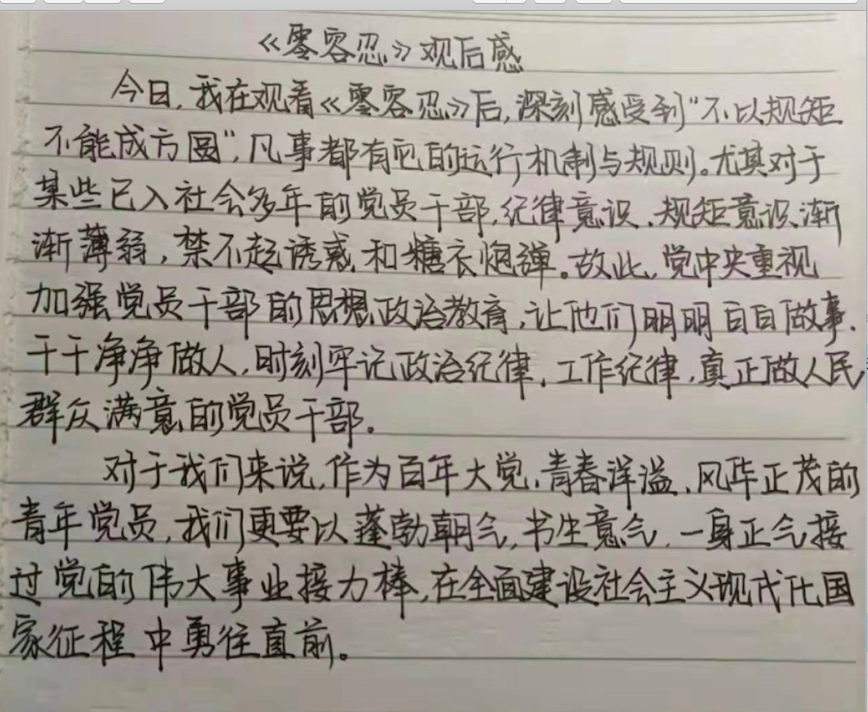 《零容忍》观后感
今日,我在观看《零容忍》后,深刻感受到"不以规矩
不能成方圆",凡事都有它的运行机制与规则。尤其对于
某些已入社会多年的党员干部,纪律意识、规矩意识渐
渐薄弱,禁不起诱惑和糖衣炮弹。故此,党中央重视
加强党员干部的思想政治教育,让他们明明白白做事、
干干净净做人,时刻牢记政治纪律、工作纪律,真正做人民
群众满意的党员干部。
对于我们来说,作为百年大党、青春洋溢、风华正茂的
青年党员,我们更要以蓬勃朝气,书生意气,一身正气接
过党的伟大事业接力棒,在全面建设社会主义现代化国
家征程中勇往直前。